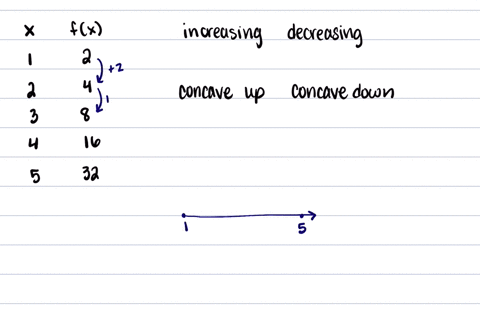 x f(x) increasing decreasing
1 2
+2
2 4 concave up concave down
1
3 8
4 16
5 32
1 5